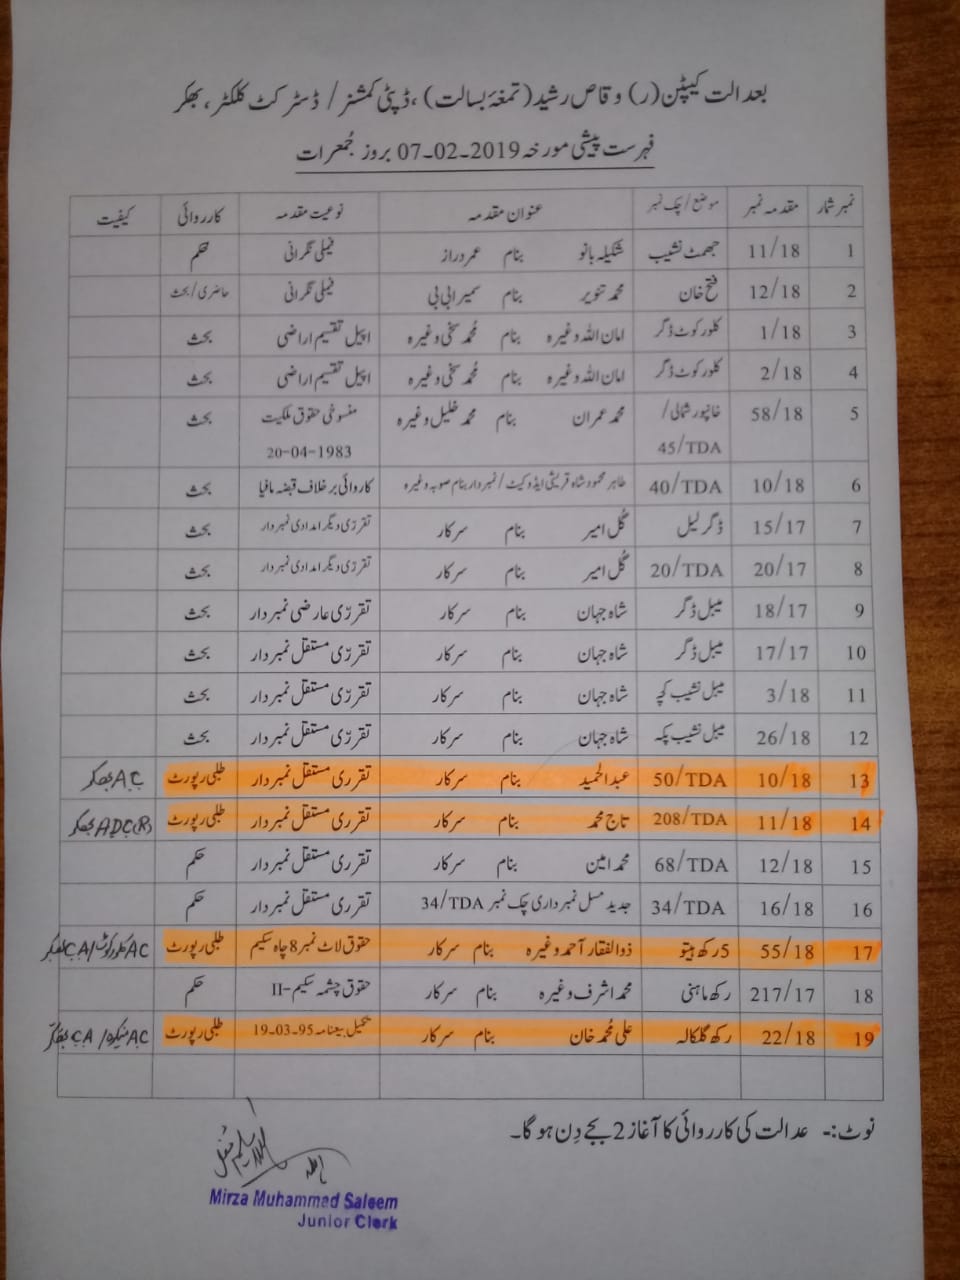 بعدالت کیپٹن (ر) وقاص رشید (تمغۂ بسالت)، ڈپٹی کمشنر / ڈسٹرکٹ کلکٹر، بھکر
فہرست پیشی مورخہ 07-02-2019 بروز جُمعرات
نمبر شمار مقدمہ نمبر موضع/چک نمبر عنوان مقدمہ نوعیت مقدمہ کارروائی کیفیت
1 11/18 جھمٹ نشیب شکیلہ بانو بنام عمر دراز فیملی نگرانی حکم
2 12/18 فتح خان محمد تنویر بنام سمیرا بی بی فیملی نگرانی حاضری/بحث
3 1/18 کلورکوٹ ڈگر امان اللہ وغیرہ بنام مُحمد سخی وغیرہ اپیل تقسیم اراضی بحث
4 2/18 کلورکوٹ ڈگر امان اللہ وغیرہ بنام مُحمد سخی وغیرہ اپیل تقسیم اراضی بحث
5 58/18 خانپور شمالی/ محمد عمران بنام محمد خلیل وغیرہ منسوخی حقوق ملکیت بحث
45/TDA 20-04-1983
6 10/18 40/TDA طاہر محمود شاہ قریشی ایڈووکیٹ/نمبردار بنام صوبہ وغیرہ کاروائی برخلاف قبضہ مافیا بحث
7 15/17 ڈگر لیل گُل امیر بنام سرکار تقررّی دیگر امدادی نمبردار بحث
8 20/17 20/TDA گُل امیر بنام سرکار تقررّی دیگر امدادی نمبردار بحث
9 18/17 میبل ڈگر شاہ جہان بنام سرکار تقررّی عارضی نمبردار بحث
10 17/17 میبل ڈگر شاہ جہان بنام سرکار تقررّی مستقل نمبردار بحث
11 3/18 میبل نشیب کچہ شاہ جہان بنام سرکار تقررّی مستقل نمبردار بحث
12 26/18 میبل نشیب پکہ شاہ جہان بنام سرکار تقررّی مستقل نمبردار بحث
13 10/18 50/TDA عبدالحمید بنام سرکار تقرری مستقل نمبردار طلبی رپورٹ AC بھکر
14 11/18 208/TDA تاج محمد بنام سرکار تقرری مستقل نمبردار طلبی رپورٹ ADC(R) بھکر
15 12/18 68/TDA محمد امین بنام سرکار تقرری مستقل نمبردار حکم
16 16/18 34/TDA جدید مسل نمبرداری چک نمبر 34/TDA تقرری مستقل نمبردار حکم
17 55/18 5 رکھ ہیتو ذوالفقار آحمد وغیرہ بنام سرکار حقوق لاٹ نمبر 8 چاہ سکیم طلبی رپورٹ AC کلورکوٹ/CA بھکر
18 217/17 رکھ ماہنی محمد اشرف وغیرہ بنام سرکار حقوق چشمہ سکیم-II حکم
19 22/18 رکھ گلکالہ علی مُحمد خان بنام سرکار تکمیل بیعنامہ 19-03-95 طلبی رپورٹ AC منکیرہ/CA بھکر
نوٹ:- عدالت کی کارروائی کا آغاز 2 بجے دِن ہو گا۔
Mirza Muhammad Saleem
Junior Clerk